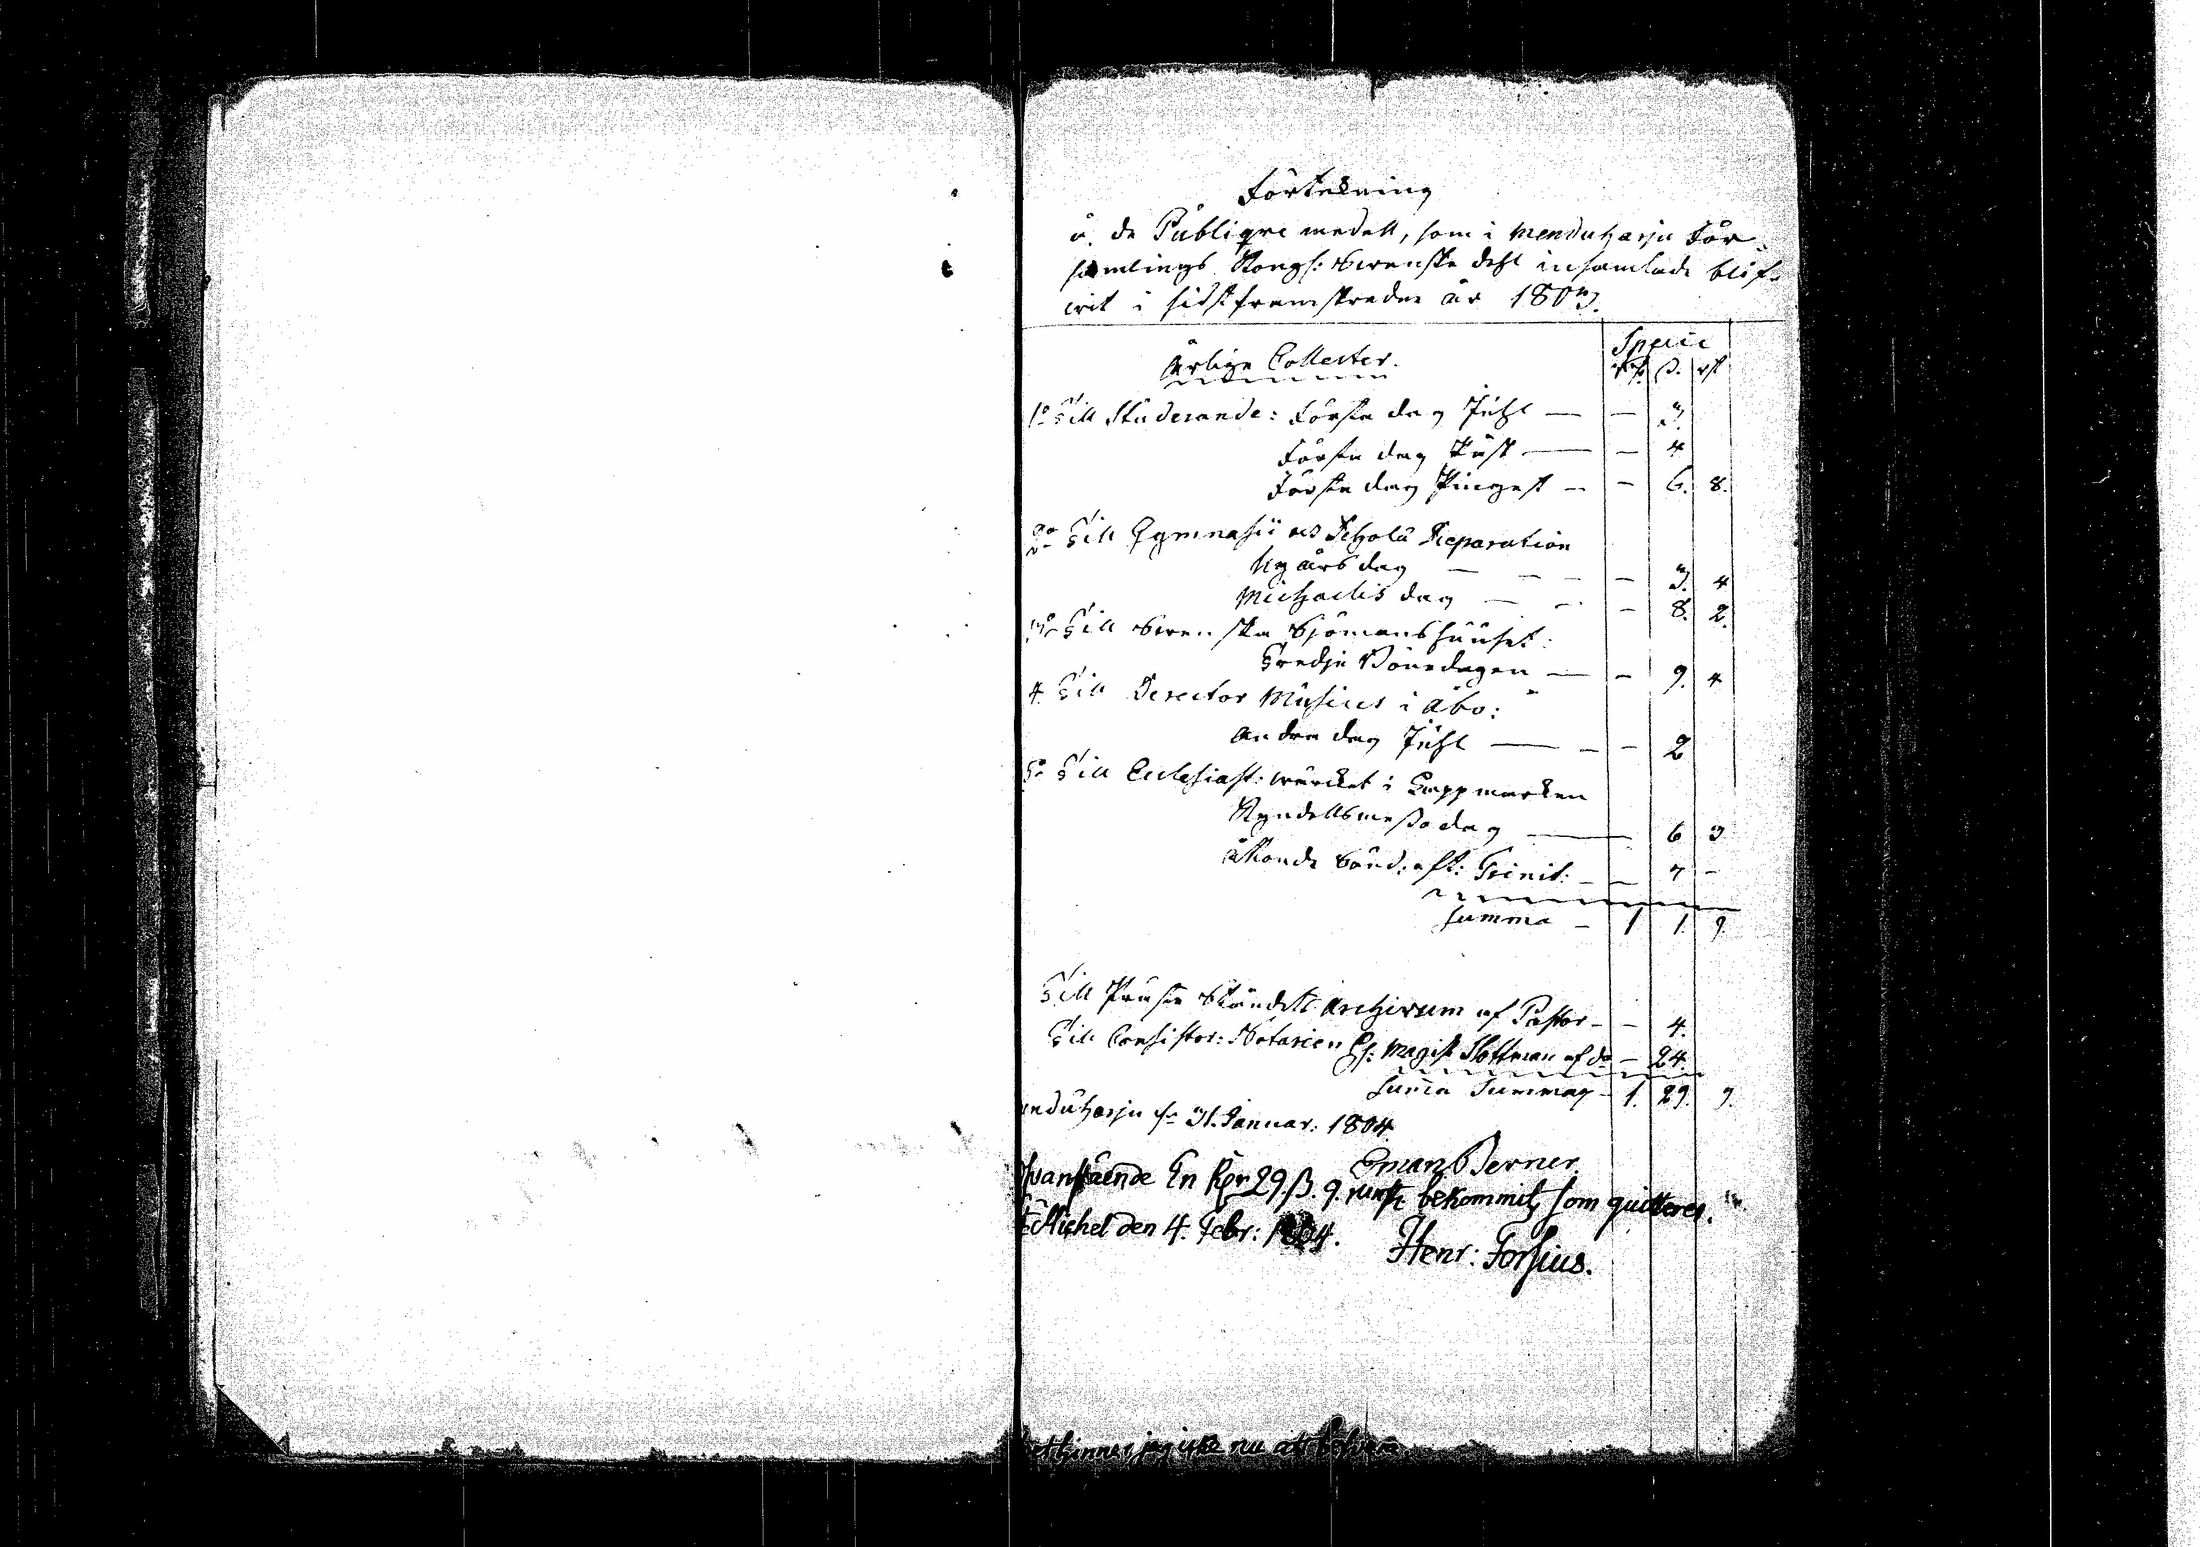 Förtekning
å de Publique medell, som i Menduharju För-
samlings Kongs: Swenske dehl insamlade blif-
wit i sidstframskredne år 1803.
Specie
Årlige Collecter. Rdr ß. rst
1o Till Studerande: Första dag Juhl — — 3.
Första dag Påsk — — 4
Första dag Pingest — — 6. 8.
2o Till Gymnasii och Schola Reparation
Nyårsdag — — — — 3. 4
Michaelis dag — — — 8. 2.
3o Till Swenska Sjömanshuuset:
Tredje Bönedagen — — 9. 4
4. Till Director Musices i Åbo:
Andra dag Juhl — — — 2
5o Till Ecclesiast: wärcket i Lappmarken
Kyndelsmesso dag — 6 3
Åttonde Sönd: eft: Trinit: — — 7 —
Summa — 1 1. 9.
Till Präste Ståndets Archivum af Pastor — — 4.
Till Consistor: Notarien Hr: Magist Hoffman af do — 24.
Suma Summar — 1. 29. 9.
nduharju d. 31. Januar: 1804.
Eman Berner.
Ofvanstående En Rdr 29 ß. 9. runst bekommit, som quitteres.
St Michel den 4. Febr: 1804.
Henr: Forsius.
hinner jag icke nu att